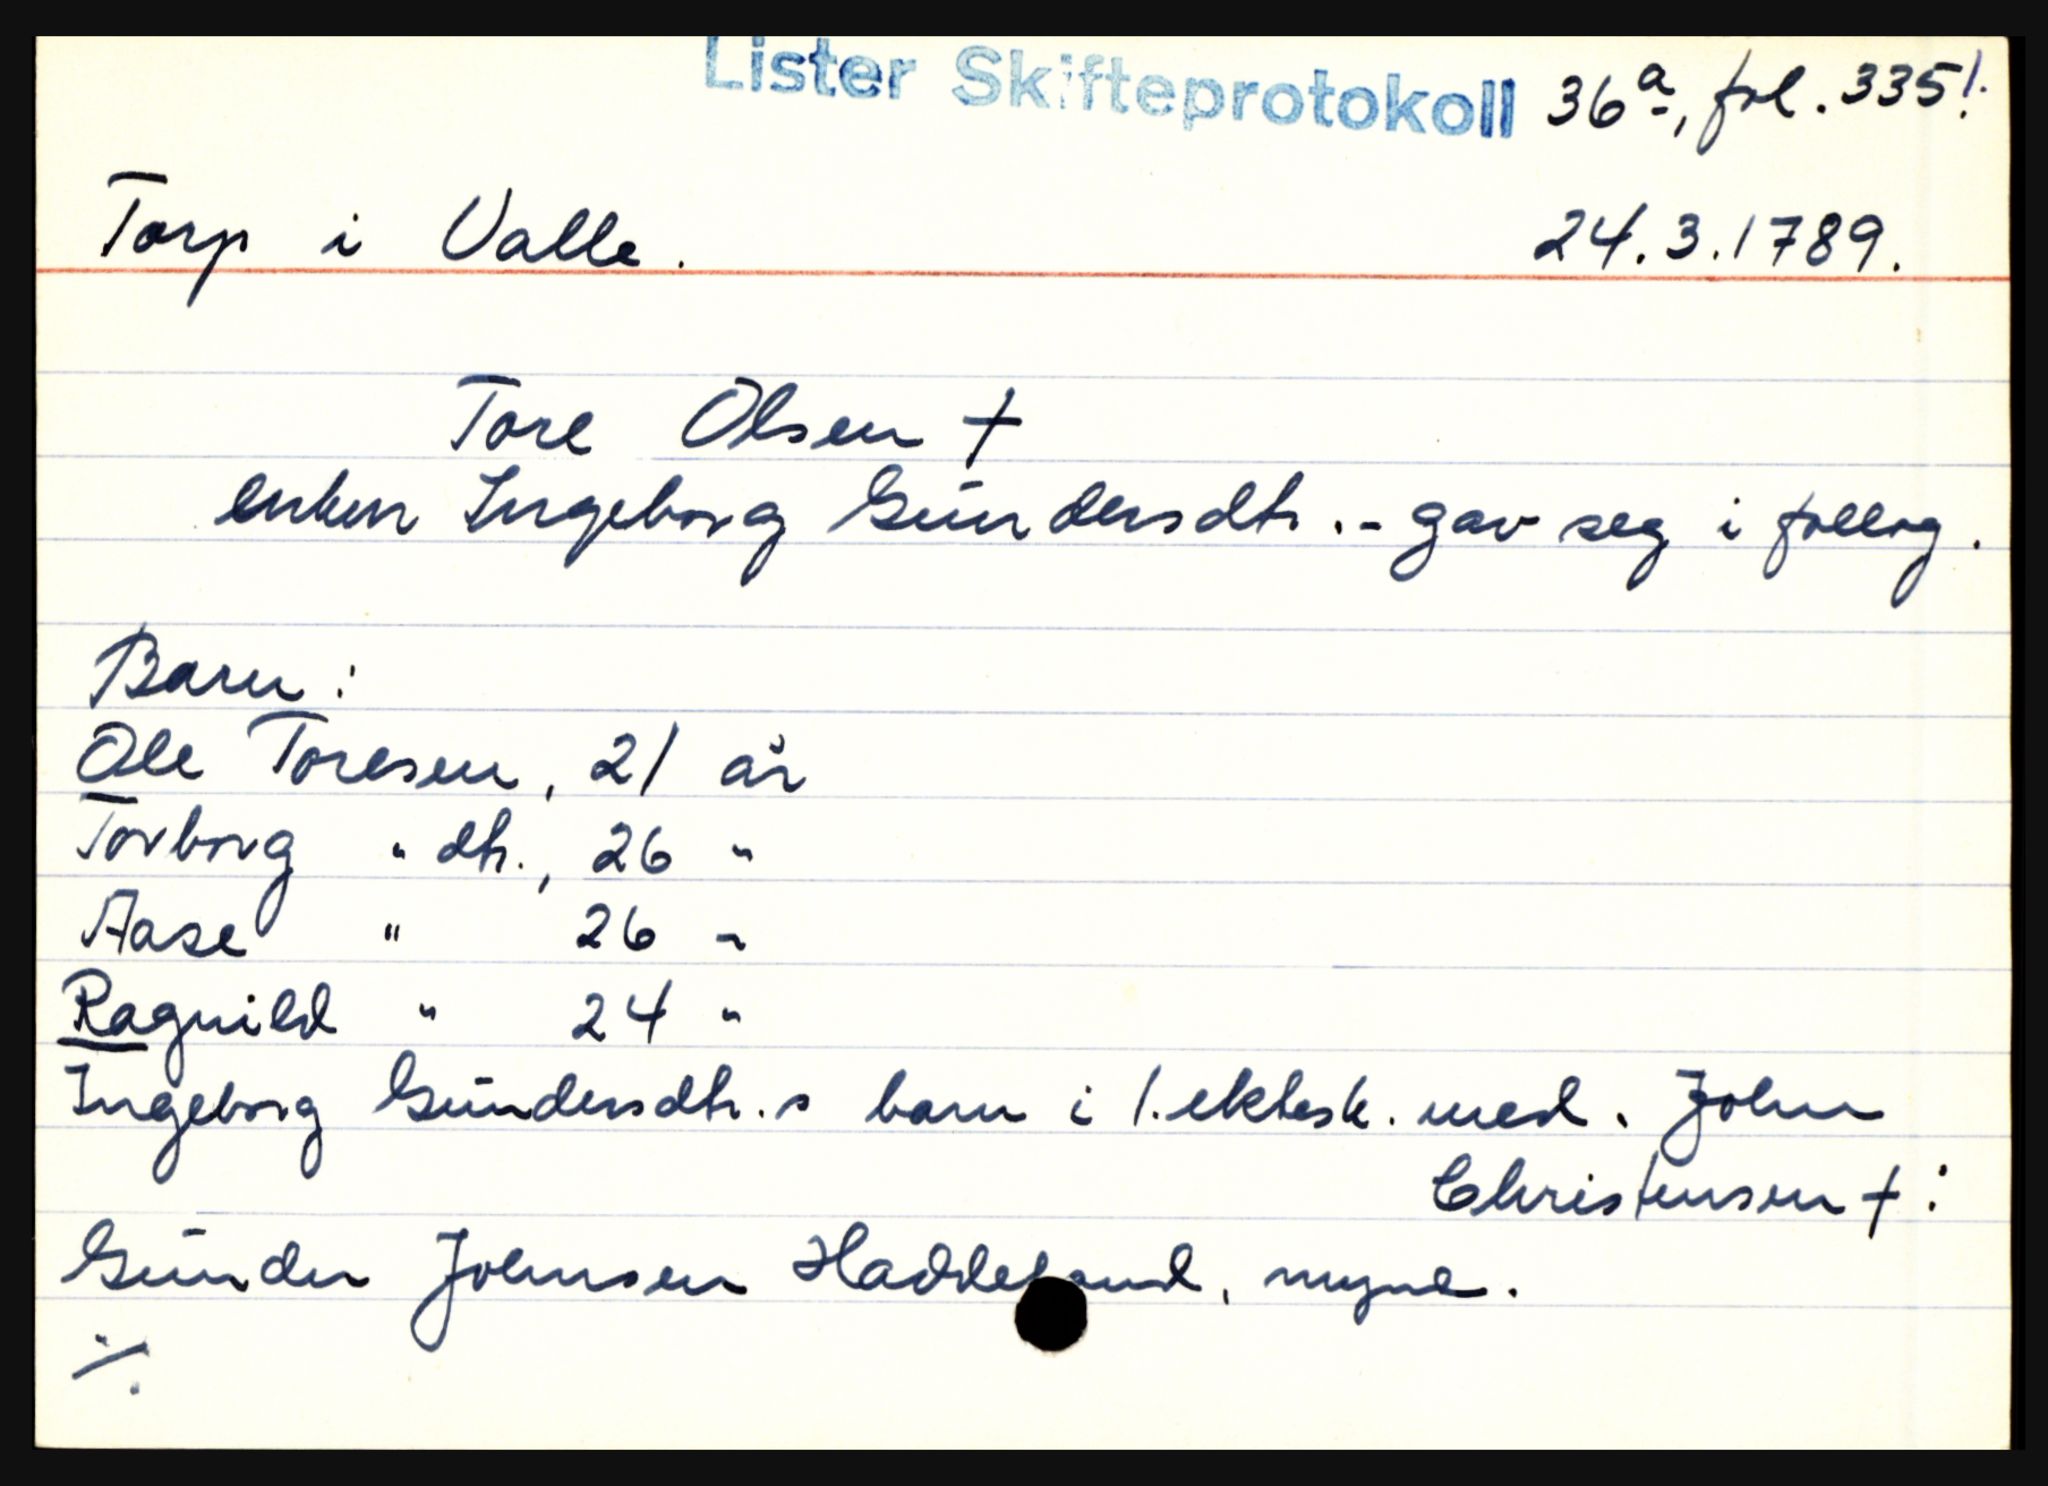 Lister Skifteprotokoll 36a, fol. 335!
Torp i Valle. 24.3.1789.
Tore Olsen †
enken Ingeborg Gündersdtr. - gav seg i follog.
Barn:
Ole Toresen, 21 år
Torborg " dtr., 26 "
Aase " 26 "
Ragnild " 24 "
Ingeborg Gündersdtr.s barn i 1. ektesk. med. John
Christensen †:
Günder Johnsen Haddeland, mynd.
./.